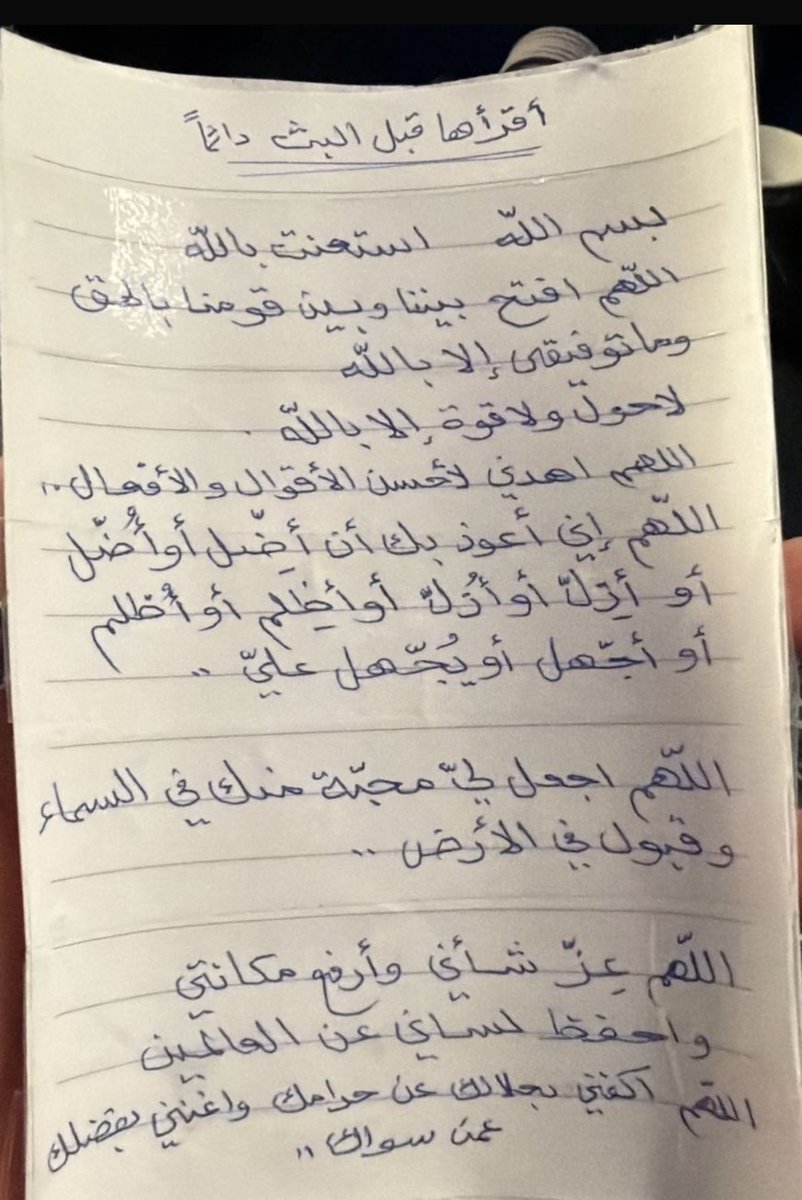 أقرأها قبل البث دائماً
بسم اللّه استعنت باللّه
اللّهم افتح بيننا وبين قومنا بالحق
وما توفيقي إلا باللّه
لا حول ولا قوة إلا باللّه .
اللهم اهدني لأحسن الأقوال والأفعال ..
اللّهم إني أعوذ بك أن أضِّل أو أُضّل
أو أزِلّ أو أُزلّ أو أظِلم أو أُظلم
أو أجّهل أو يُجّهل عليّ ..
اللّهم اجعل ليّ محبّة منك في السماء
وقبول في الأرض ..
اللّهم عِزّ شأني وأرفع مكانتي
واحفظ لساني عن العالمين
اللهم اكفني بحلالك عن حرامك واغنني بفضلك
عمن سواك ..